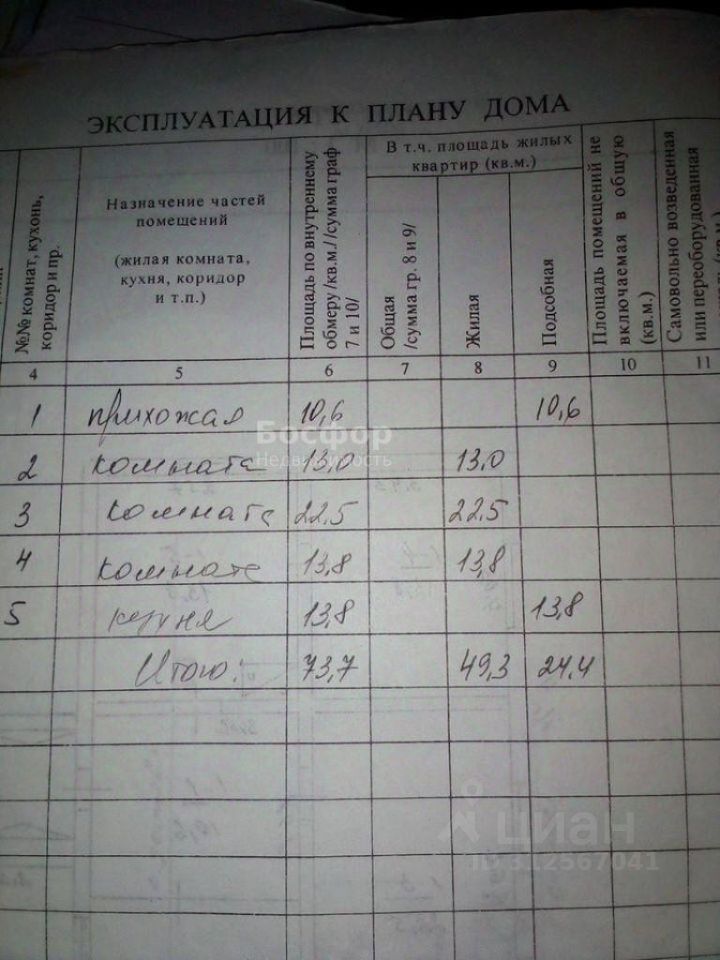 ЭКСПЛУАТАЦИЯ К ПЛАНУ ДОМА
№№ комнат, кухонь,
коридор и пр.
Назначение частей
помещений
(жилая комната,
кухня, коридор
и т.п.)
Площадь по внутреннему
обмеру /кв.м.//сумма граф
7 и 10/
В т.ч. площадь жилых
квартир (кв.м.)
Общая
/сумма гр. 8 и 9/
Жилая
Подсобная
Площадь помещений не
включаемая в общую
(кв.м.)
Самовольно возведенная
или переоборудованная
4 5 6 7 8 9 10 11
1 прихожая 10,6 10,6
2 комната 13,0 13,0
3 комната 22,5 22,5
4 комната 13,8 13,8
5 кухня 13,8 13,8
Итого: 73,7 49,3 24,4
Босфор
Недвижимость
циан
ID 312567041